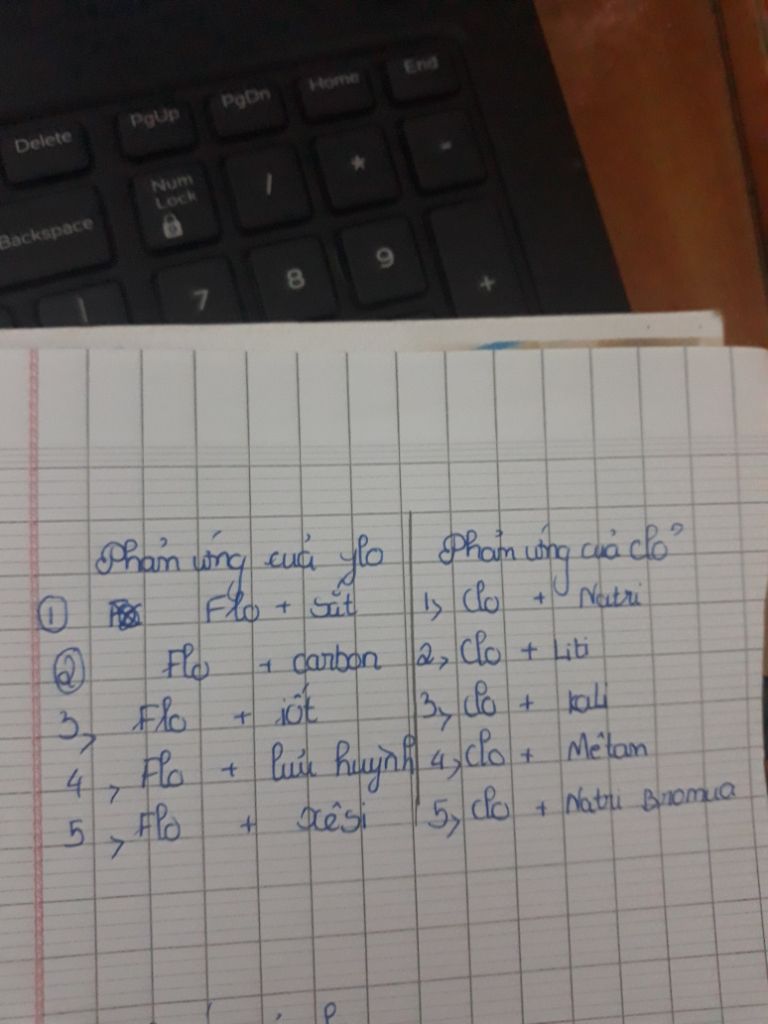 Delete PgUp PgDn Home End
Backspace Num Lock / * -
7 8 9 +
Phản ứng của flo
① Flo + sắt
② Flo + carbon
3, Flo + iốt
4, Flo + lưu huỳnh
5, Flo + xêsi
Phản ứng của clo
1, Clo + Natri
2, Clo + Liti
3, Clo + kali
4, Clo + Mêtan
5, Clo + Natri Bromua